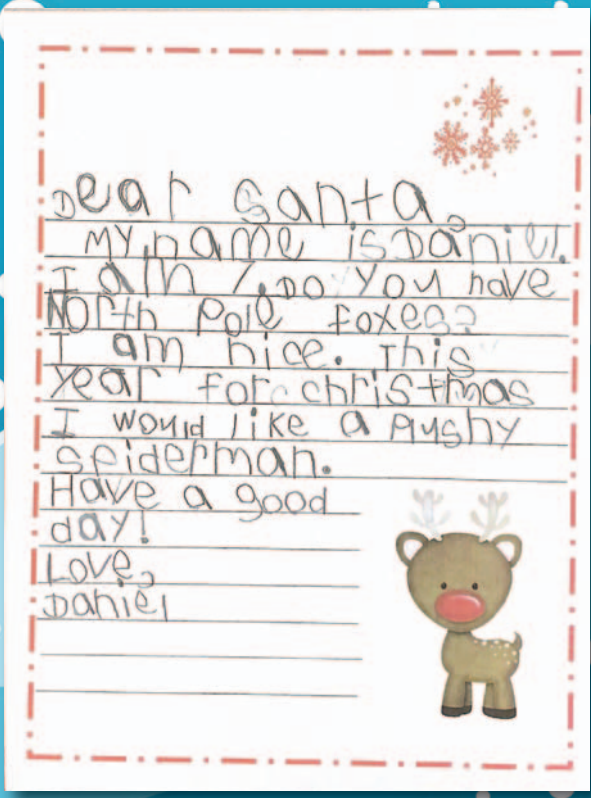 Dear Santa,
My name is Daniel.
I am 7. Do you have
North Pole foxes?
I am nice. This
year for christmas
I would like a plushy
spiderman.
Have a good
day!
Love,
Daniel